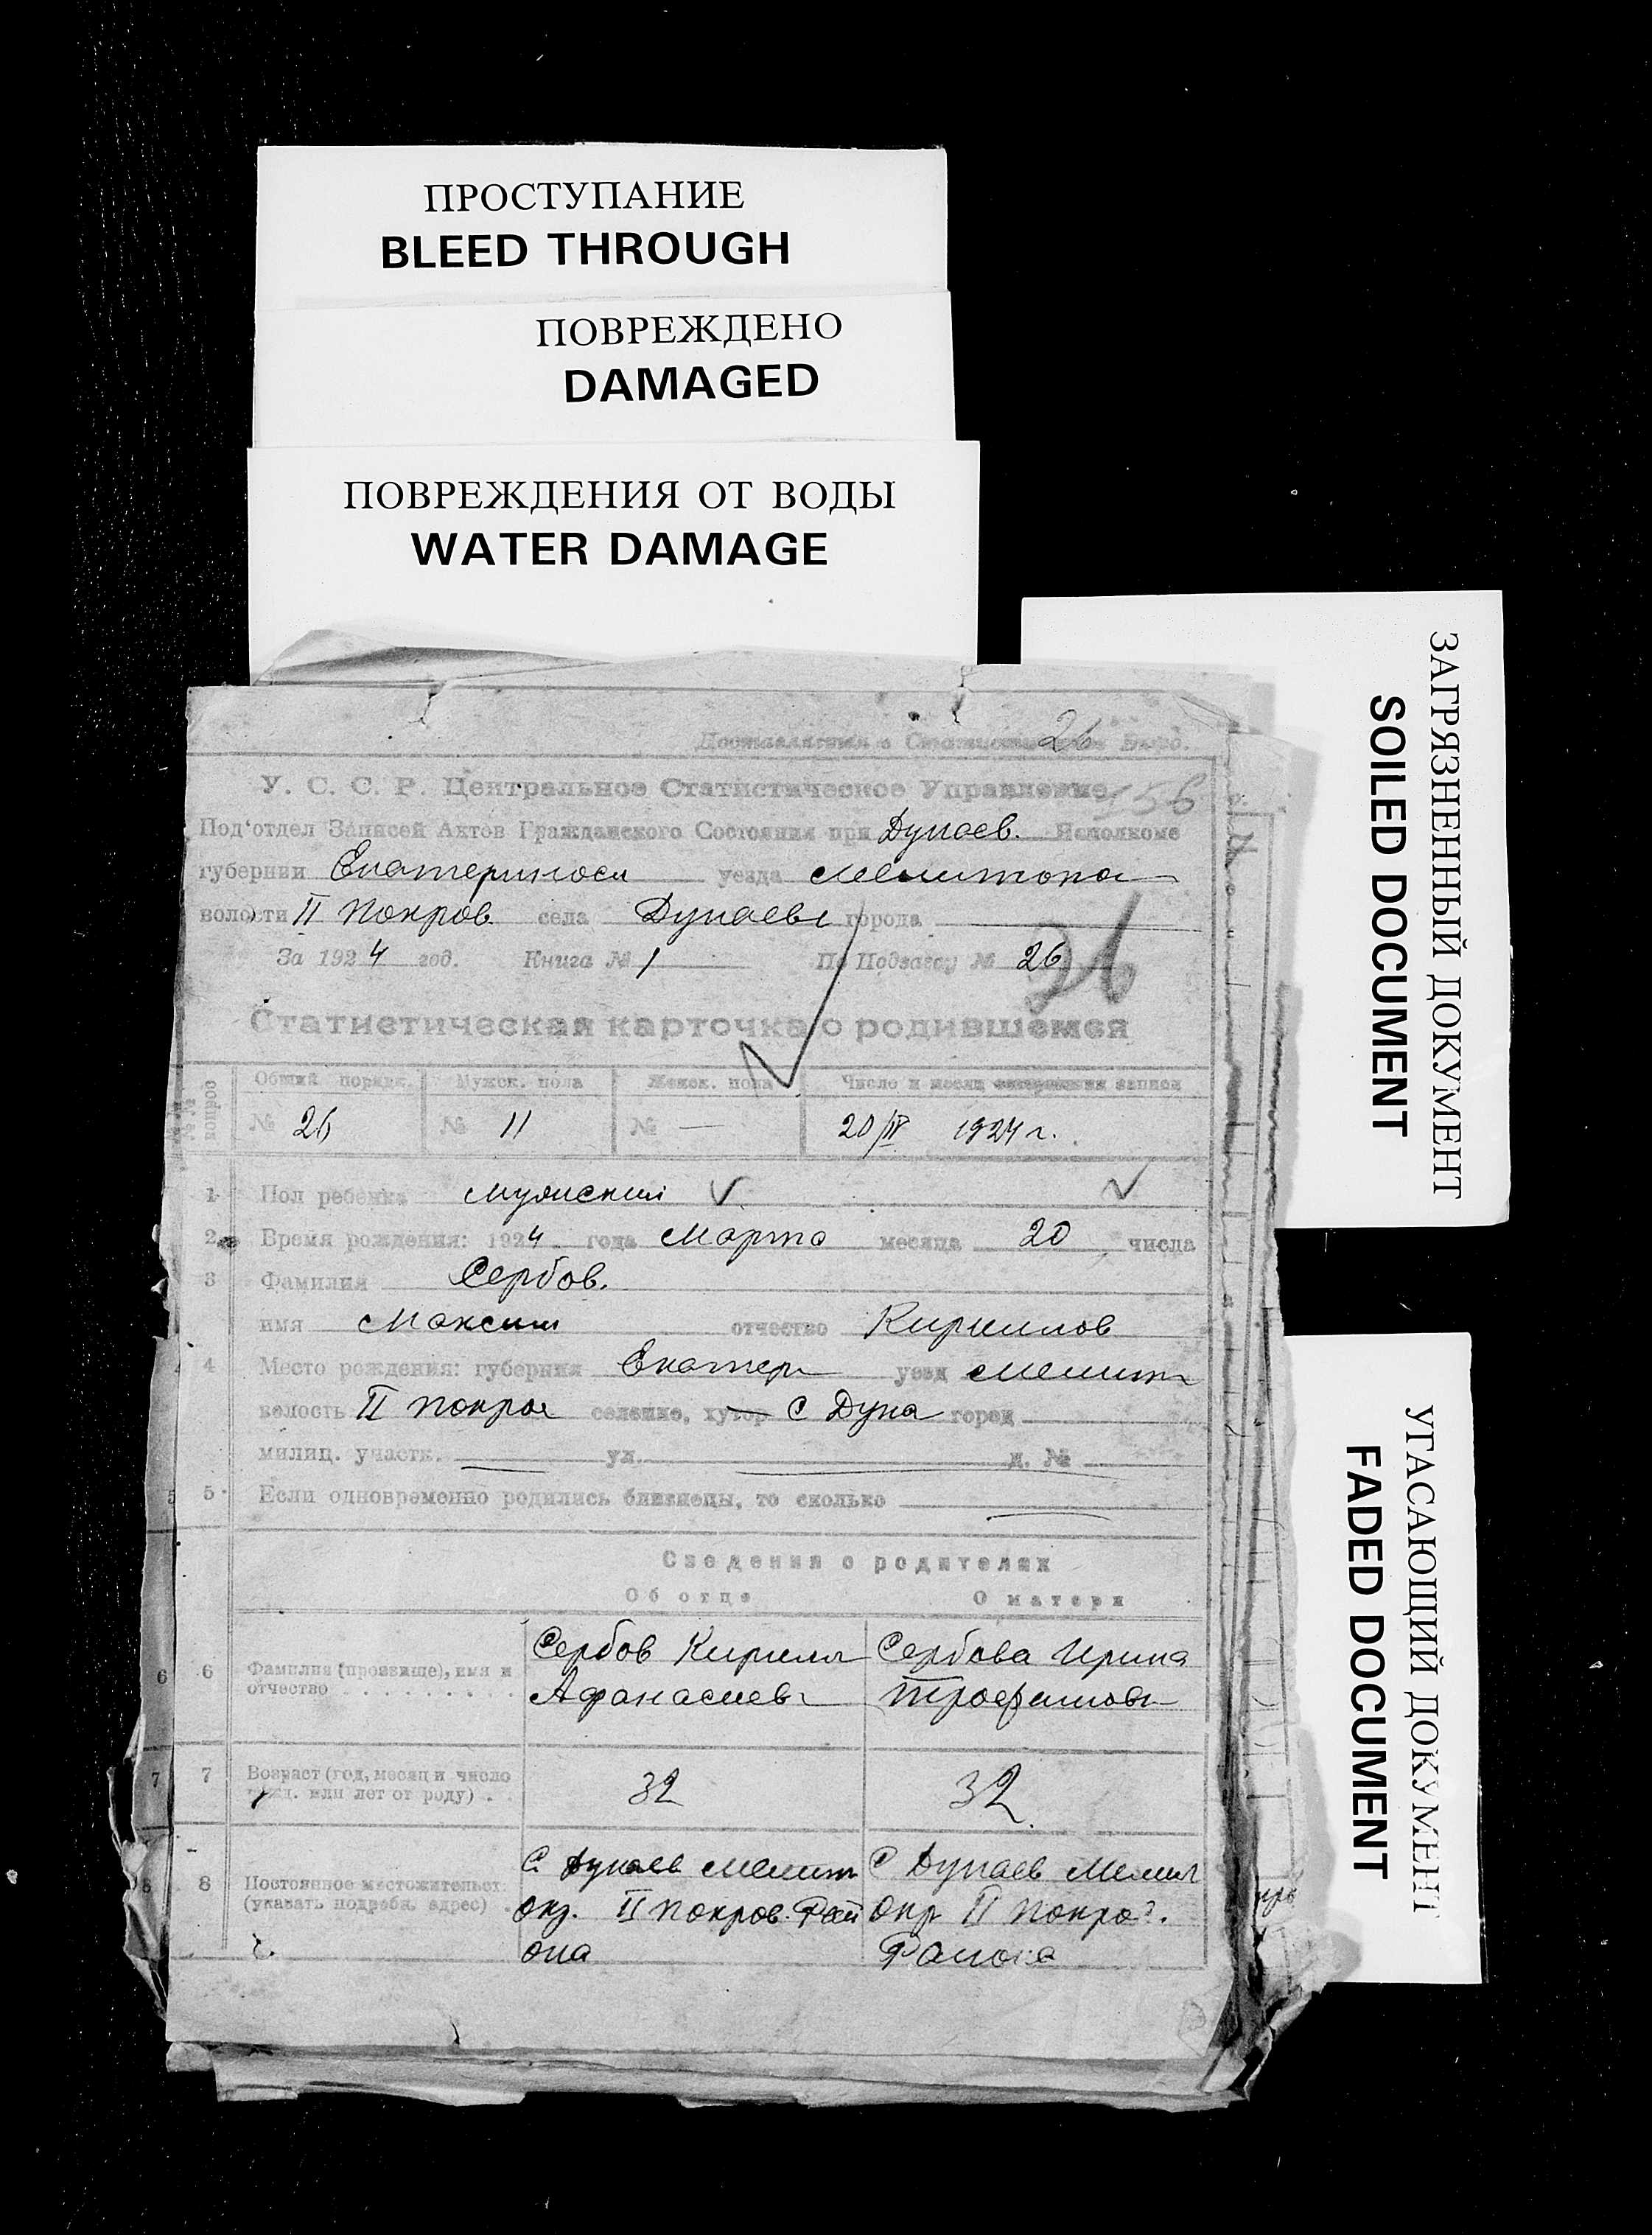 ПРОСТУПАНИЕ
BLEED THROUGH
ПОВРЕЖДЕНО
DAMAGED
ПОВРЕЖДЕНИЯ ОТ ВОДЫ
WATER DAMAGE
ЗАГРЯЗНЕННЫЙ ДОКУМЕНТ
SOILED DOCUMENT
УГАСАЮЩИЙ ДОКУМЕНТ
FADED DOCUMENT
26
Доставляется в Статистическое Бюро.
У. С. С. Р. Центральное Статистическое Управление
156
Под'отдел Записей Актов Гражданского Состояния при Дунаев. Исполкоме
губернии Екатериносл уезда Мелитопол
волости II Покров села Дунаевк города
За 1924 год. Книга № 1 По Подзагсу № 26
26
Статистическая карточка о родившемся
№№ вопрос
Общий порядк. Мужск. пола Женск. пола Число и месяц совершения записи
№ 26 № 11 № — 20/IV 1924 г.
1 Пол ребенка мужский
2 Время рождения: 1924 года Марта месяца 20 числа
3 Фамилия Сербов.
имя Максим отчество Кириллов
4 Место рождения: губерния Екатер уезд Мелит
волость II Покров селение, хутор С Дуна город
милиц. участк. ул. д. №
5 Если одновременно родились близнецы, то сколько
Сведения о родителях
Об отце О матери
6 Фамилия (прозвище), имя и отчество Сербов Кирилл Афанасиев Сербова Ирина Трофимовн
7 Возраст (год, месяц и число рожд. или лет от роду) 32 32
8 Постоянное местожительст. (указать подробн. адрес) С. Дунаев Мелит окр. II Покров. Района С Дунаев Мелит окр II Покро. Района